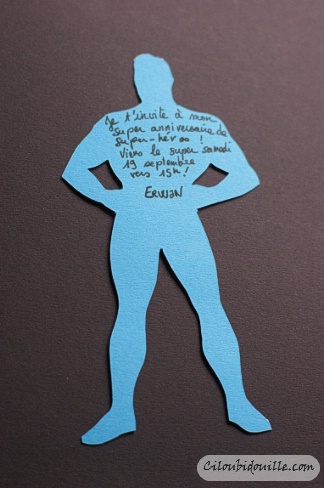 Je t'invite à mon
super anniversaire de
super-héros !
Viens le super samedi
19 septembre
vers 15h !
ERWAN
Ciloubidouille.com